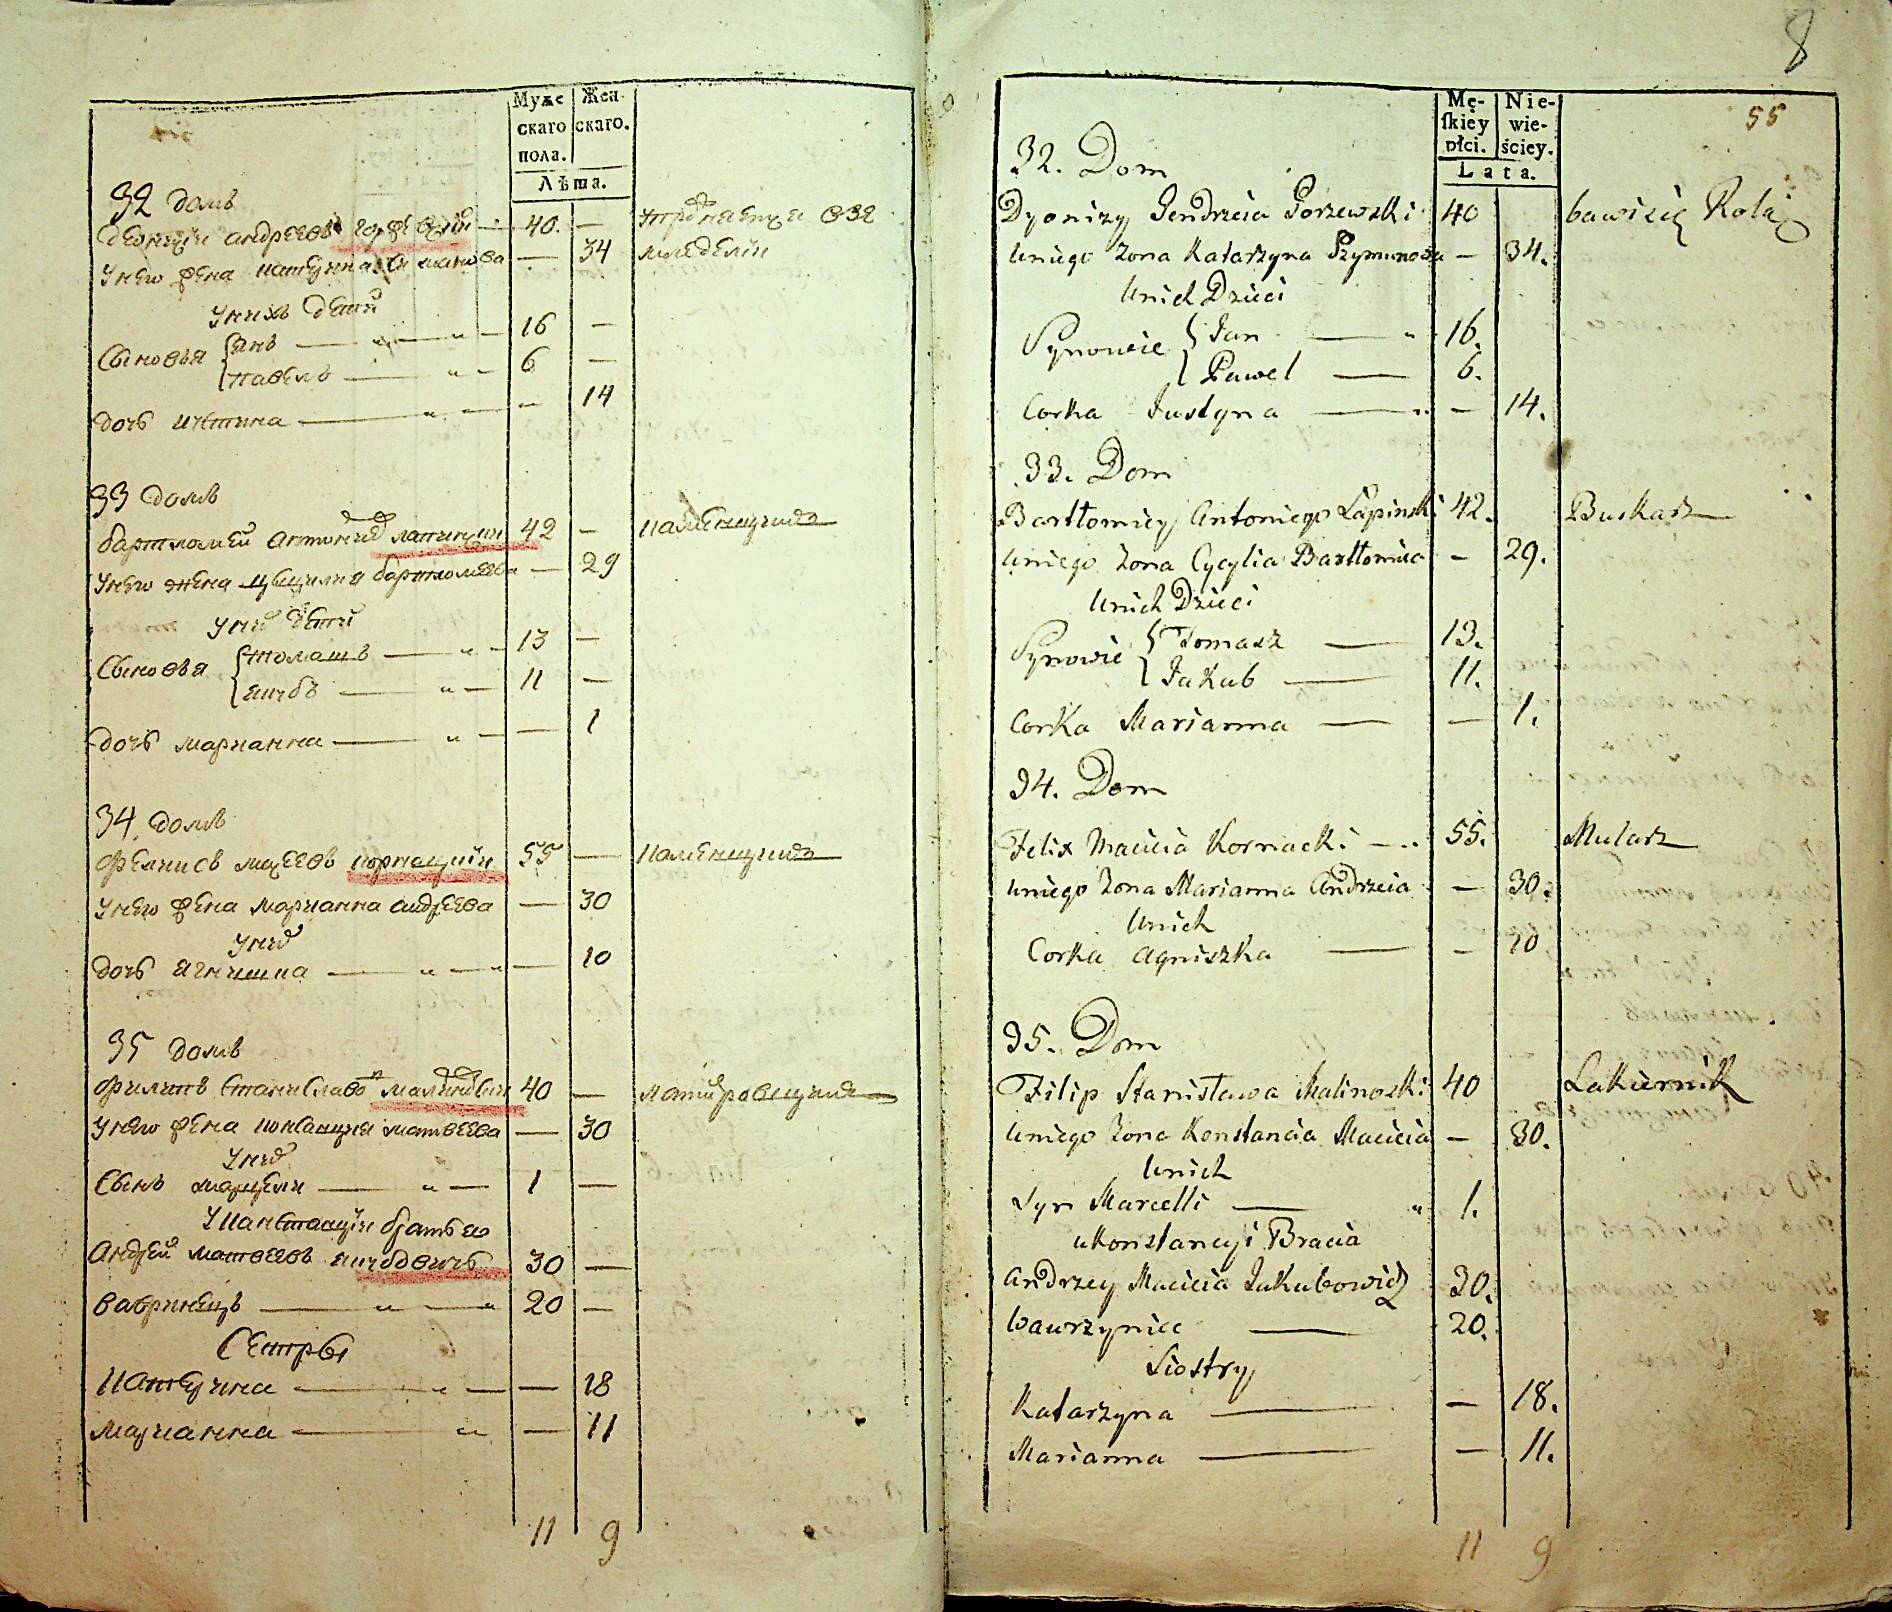 Муже
скаго
пола.
Жен
скаго.
Лѣта.
32 домъ
дионизiи андреевъ 40. —
унего жена катержина — 34
унихъ дети
Сыновья { янъ — 16 —
павелъ — 6 —
дочь юстина — — 14
33 домъ
бартломей антониев лапинскiи 42 — каменщикъ
унего жена цецилия бартломеева — 29
уних дети
Сыновья { томашъ — 13 —
якубъ — 11 —
дочь марианна — — 1
34. домъ
Феликсъ мацеевъ корнацкiи 55 — каменщикъ
унего жена марианна андреева — 30
уних
дочь агнишка — — 10
35 домъ
Филипъ Станиславов малиновски 40 —
унего жена констанция матвеева — 30
уних
Сынъ марцели — 1 —
уконстанцiи братья
Андрей матвеевъ якубовичъ 30 —
вавринецъ — 20 —
Сестры
катержина — — 18
марианна — — 11
11 9
8
55
Mę-
skiey
płci.
Nie-
wie-
ściey.
Lata.
32. Dom
Dyonizy Jendrzeia Gorzewski 40 bawi się Rolą
uniego Zona Katarzyna Szymonowa — 34.
Unich Dzieci
Synowie { Jan — 16.
Paweł — 6.
Corka Justyna — — 14.
33. Dom
Bartłomiey Antoniego Łapinski 42. Buskarz
uniego Zona Cycylia Bartłomieia — 29.
Unich Dzieci
Synowie { Tomasz — 13.
Jakub — 11.
Corka Marianna — — 1.
34. Dom
Felix Macieia Kornacki — 55. Mularz
uniego Zona Marianna Andrzeia — 30.
Unich
Corka Agniszka — — 10
35. Dom
Filip Stanisława Malinoski 40 Lakiernik
uniego Zona Konstancia Macieia — 30.
Unich
Syn Marcelli — 1.
uKonstancyi Bracia
Andrzey Macieia Jakubowicz 30.
Wawrzyniec — 20.
Siostry
Katarzyna — — 18.
Marianna — — 11.
11 9